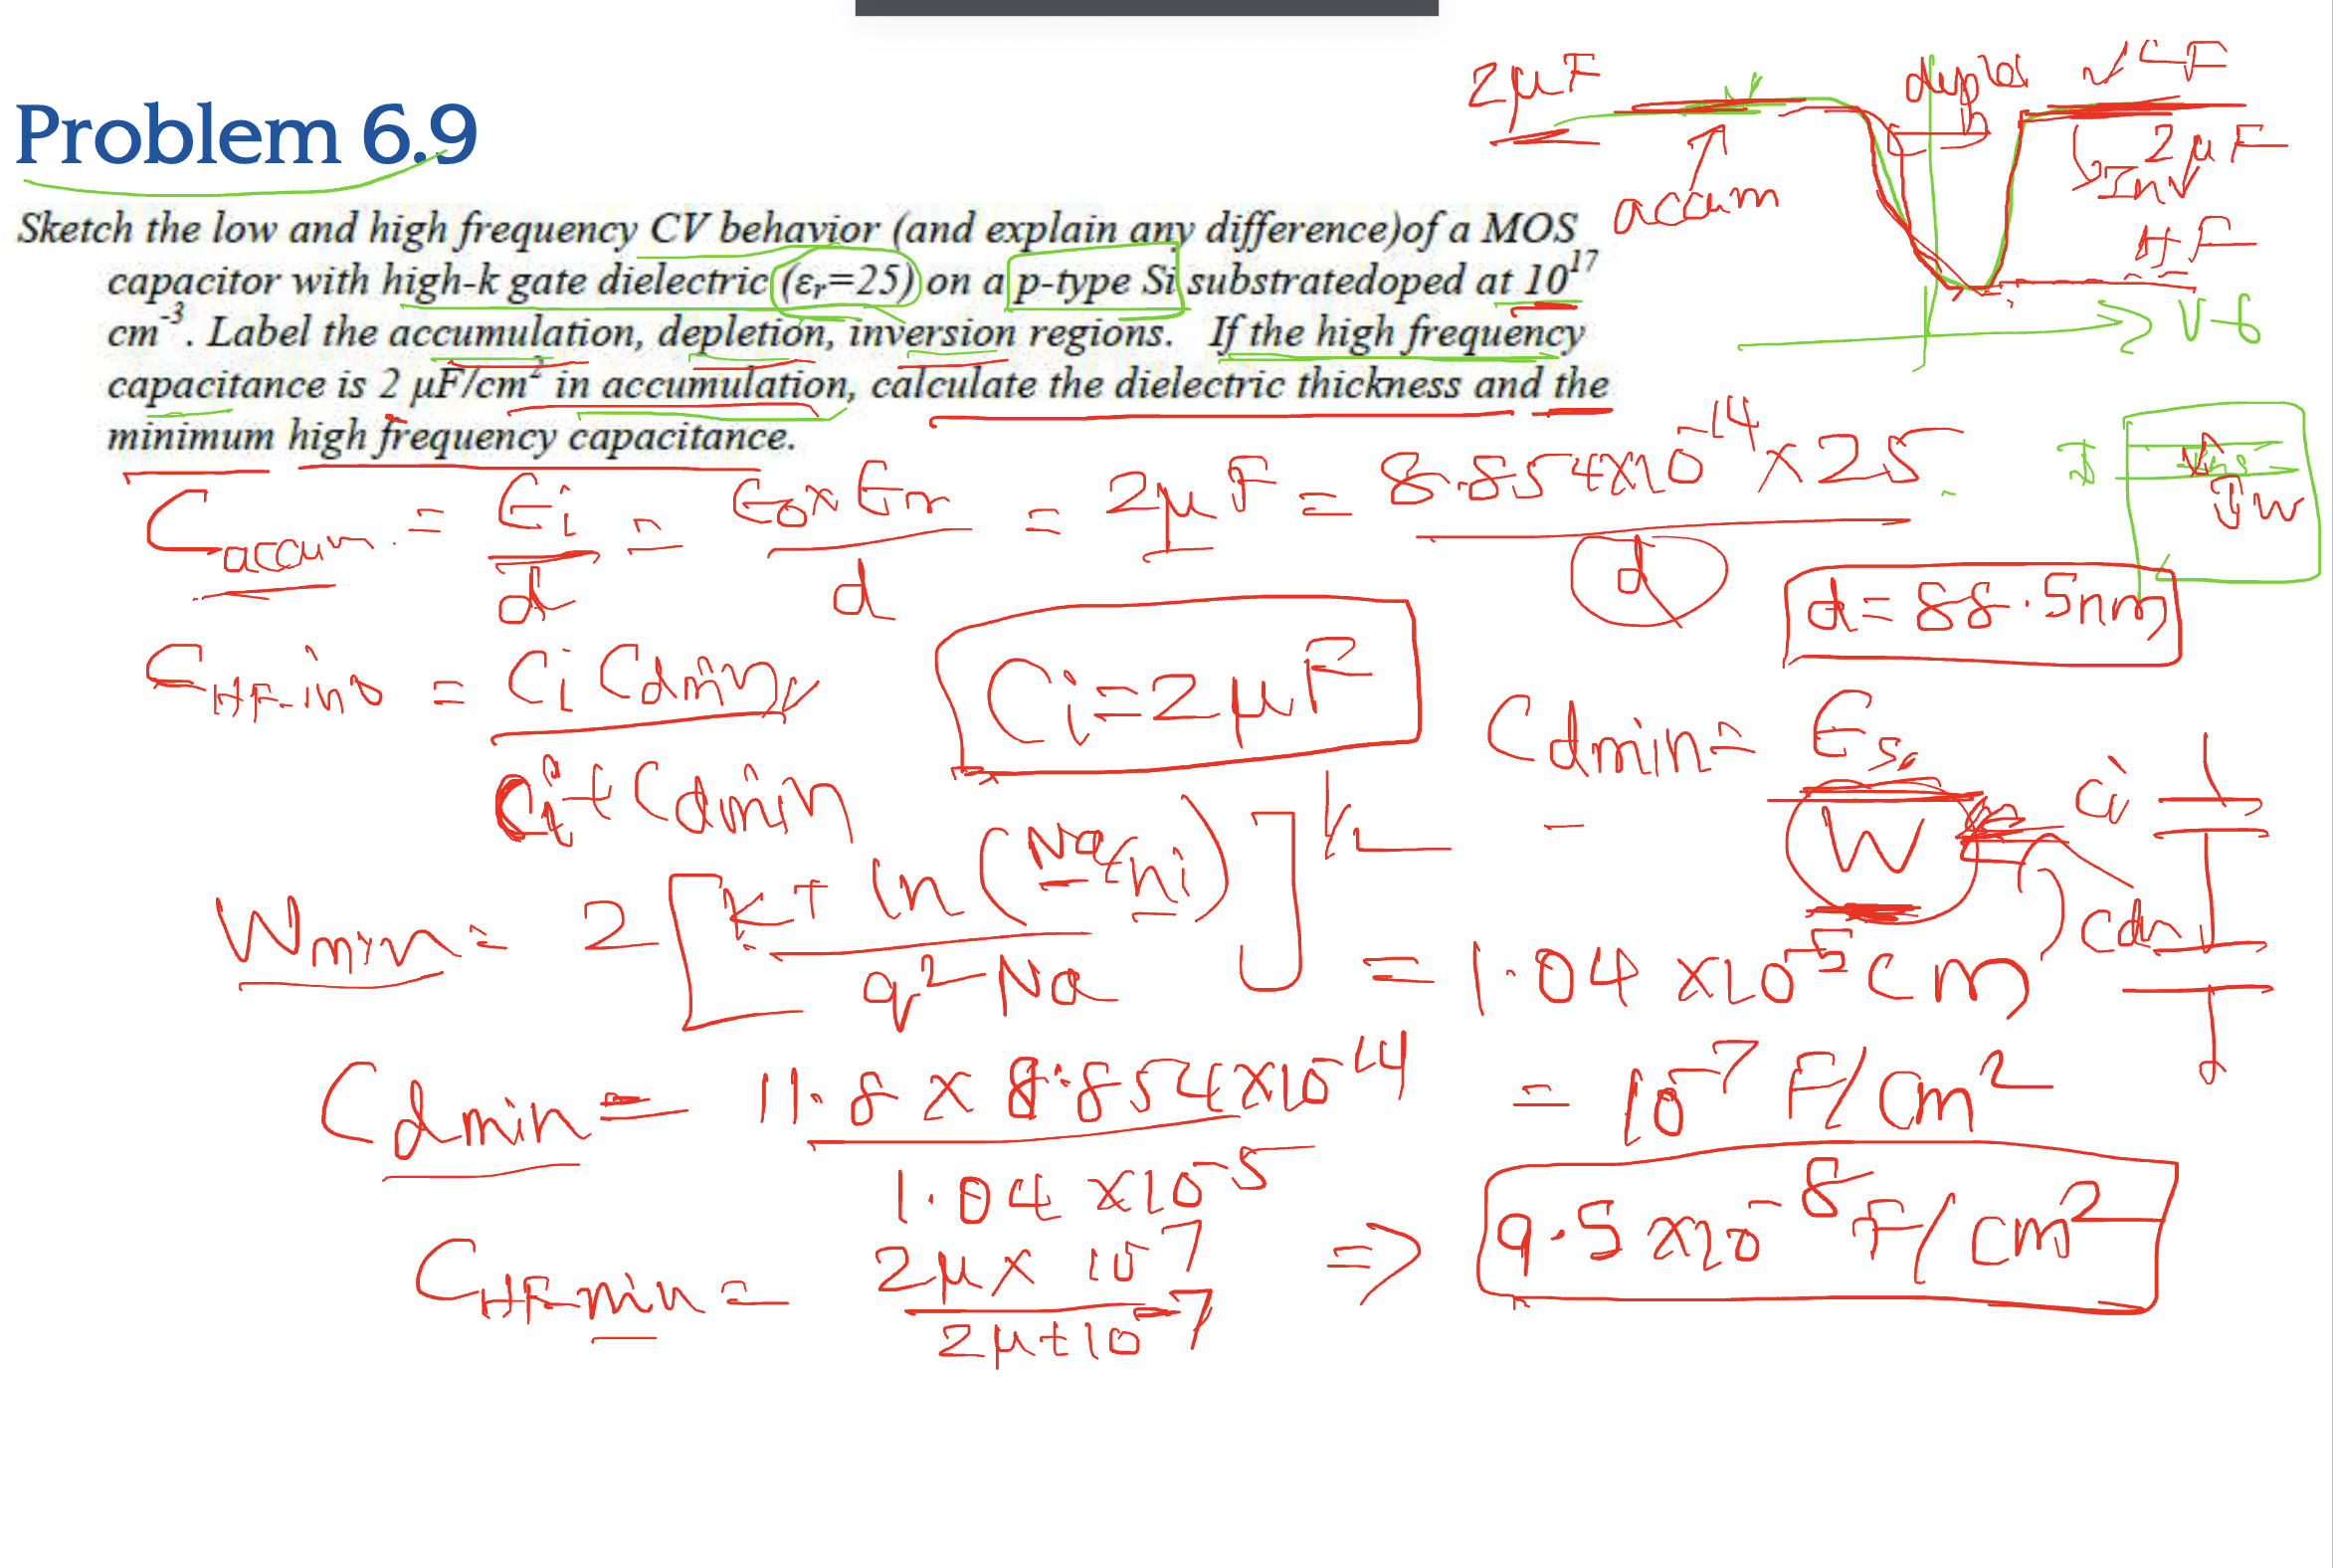 Problem 6.9
Sketch the low and high frequency CV behavior (and explain any difference)of a MOS
capacitor with high-k gate dielectric (εr=25) on a p-type Si substratedoped at 10^17
cm^-3. Label the accumulation, depletion, inversion regions. If the high frequency
capacitance is 2 μF/cm^2 in accumulation, calculate the dielectric thickness and the
minimum high frequency capacitance.
2μF
accum
LF
2μF
Inv
HF
V-G
C accum. = Ei / d = E0 x Er / d = 2μF = 8.854x10^-14 x 25 / d
W
d = 88.5nm
C HF-inv = Ci Cdmin / Ci + Cdmin
Ci = 2μF
Cdmin = Es / W
Ci
Wmin = 2 [ KT ln (Na/ni) / q^2 Na ]^1/2 = 1.04 x10^-5 cm
Cdmin = 11.8 x 8.854x10^-14 / 1.04 x10^-5 = 10^-7 F/cm^2
C HF-min = 2μ x 10^-7 / 2μ+10^-7 => 9.5 x10^-8 F/cm^2